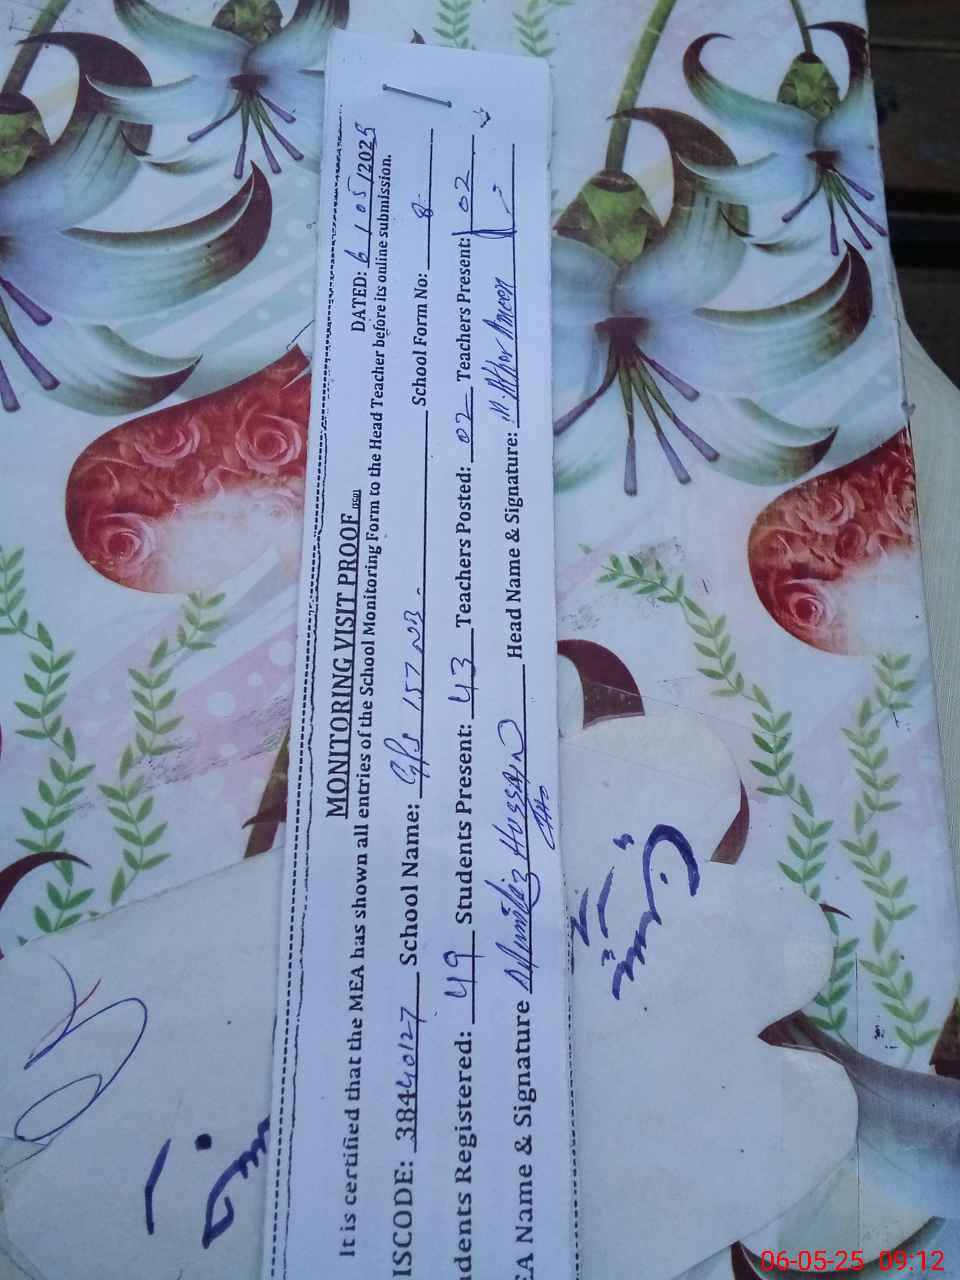 MONITORING VISIT PROOF
DATED: 6/05/2025
It is certified that the MEA has shown all entries of the School Monitoring Form to the Head Teacher before its online submission.
ISCODE: 38440127 School Name: GPS 157 NB. School Form No: 8
dents Registered: 49 Students Present: 43 Teachers Posted: 02 Teachers Present: 02
EA Name & Signature Hussain Head Name & Signature: M. Ather Ameen
06-05-25 09:12